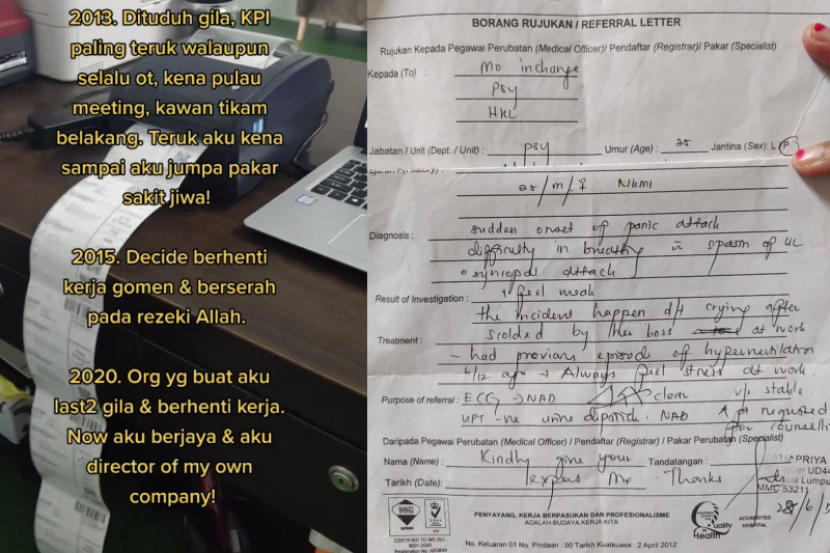 2013. Dituduh gila, KPI
paling teruk walaupun
selalu ot, kena pulau
meeting, kawan tikam
belakang. Teruk aku kena
sampai aku jumpa pakar
sakit jiwa!
2015. Decide berhenti
kerja gomen & berserah
pada rezeki Allah.
2020. Org yg buat aku
last2 gila & berhenti kerja.
Now aku berjaya & aku
director of my own
company!
BORANG RUJUKAN / REFERRAL LETTER
Rujukan Kepada Pegawai Perubatan (Medical Officer)/ Pendaftar (Registrar)/ Pakar (Specialist)
Kepada (To) : Mo incharge
Psy
HKL
Jabatan / Unit (Dept. / Unit) : psy Umur (Age) : 25 Jantina (Sex): L P
25/m/♀
Diagnosis : sudden onset of panic attack
difficulty in breathing spasm of UL
syncopal attack
Result of Investigation : feel weak
the incident happen d/t crying after
Treatment : scolded by her boss at work
- had previous episode of hyperventilation
6/12 ago → Always feel stress at work
Purpose of referral : ECG → NAD clear v/s stable.
UPT -ve urine dipstick. NAD pt requested
for counselli
Daripada Pegawai Perubatan (Medical Officer) / Pendaftar (Registrar) / Pakar Perubatan (Specialist)
Nama (Name) : Kindly give your Tandatangan : APRIYA
UD44
Tarikh (Date): expert Mx. Thanks Lumpu
MMC 53211
28/6/
PENYAYANG, KERJA BERPASUKAN DAN PROFESIONALISME
ADALAH BUDAYA KERJA KITA
Quality
Health
ACCREDITED
HOSPITAL
CERTIFIED TO MS ISO
No. Keluaran 01 No. Pindaan : 00 Tarikh Kuatkuasa : 2 April 2012